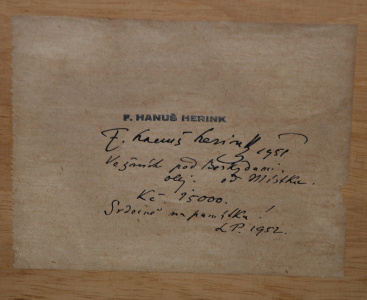 F. HANUŠ HERINK
F. Hanuš Herink 1951
Vesnice pod Beskydami.
olej. od Místku.
Kč 15000.
Srdečně na památku!
LP. 1952.